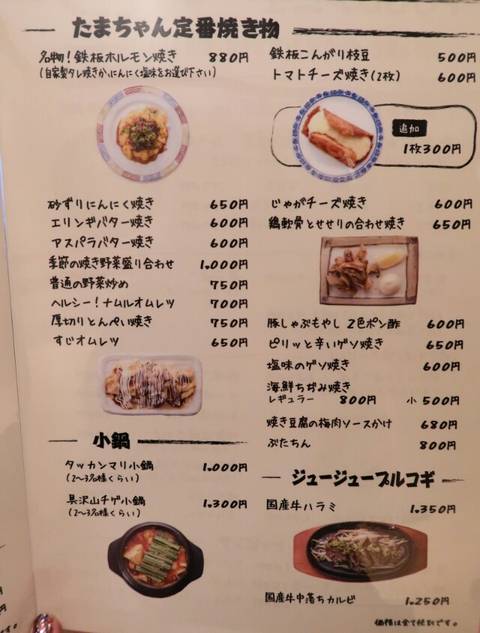 たまちゃん定番焼き物
名物!鉄板ホルモン焼き 880円
(自家製タレ焼きか、にんにく塩味をお選び下さい)
砂ずりにんにく焼き 650円
エリンギバター焼き 600円
アスパラバター焼き 600円
季節の焼き野菜盛り合わせ 1,000円
普通の野菜炒め 750円
ヘルシー!ナムルオムレツ 700円
厚切りとんぺい焼き 750円
すじオムレツ 650円
小鍋
タッカンマリ小鍋 1,000円
(2〜3名様くらい)
具沢山チゲ小鍋 1,300円
(2〜3名様くらい)
鉄板こんがり枝豆 500円
トマトチーズ焼き(2枚) 600円
追加
1枚300円
じゃがチーズ焼き 600円
鶏軟骨とせせりの合わせ焼き 650円
豚しゃぶもやし 2色ポン酢 600円
ピリッと辛いゲソ焼き 650円
塩味のゲソ焼き 600円
海鮮ちぢみ焼き
レギュラー 800円 小 500円
焼き豆腐の梅肉ソースかけ 680円
ぶたちん 800円
ジュージュープルコギ
国産牛ハラミ 1,350円
国産牛中落ちカルビ 1,250円
価格は全て税別です。